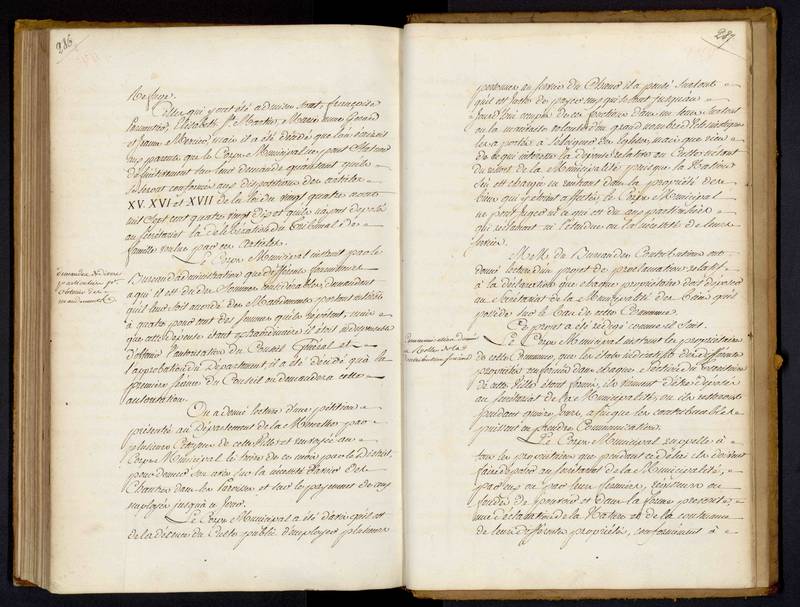 286
Refuge.
Celles qui y ont été admises sont, françoise
Parmentier, Elisabeth Marie anne Girard
et Jeanne mais il a été décidé que les
parents que le Corps Municipal ne peut Statuer
définitivement sur leur demande qu'autant qu'ils
se seront conformés aux dispositions des articles
XV. XVI et XVII de la loi du vingt quatre aout
mil Sept cent quatre vingt dix et qu'ils n'ayent déposé
au Secrétariat la délibération du Tribunal de
famille voulue par ces articles.
Le Corps Municipal instruit par le
Bureau d'administration que différents fournisseurs
à qui il est dû des Sommes considérables demandent
qu'il leur soit accordé des Mandements portant intérêts
à quatre pour cent des sommes qu'ils répètent, mais
que cette dépense étant extraordinaire il étoit indispensable
d'obtenir l'autorisation du Conseil Général et
l'approbation du Département, il a été décidé qu'à la
première séance du Conseil on demandera cette
autorisation.
On a donné lecture d'une pétition
présentée au Département de la Moselle par
plusieurs Citoyens de cette Ville et renvoyée au
Corps Municipal le treize de ce mois par le district,
pour donner son avis sur la nécessité d'avoir des
Chantres dans les Paroisses et sur le payement de ceux
employés jusqu'à ce Jour.
Le Corps Municipal a été d'avis qu'il est
de la décence du Culte public d'employer plusieurs
demandes de divers
particuliers pr.
obtenir des
mandements
287
personnes au service du Chant il a pensé surtout
qu'il est juste de payer ceux qui se sont jusqu'à
Jourd'hui occupés de ces fonctions dans un tems surtout
ou la manifeste volonté d'un grand nombre d'Ecclésiastiques
les a portés à s'éloigner des Eglises, mais que rien
de ce qui intéresse la dépense relative au Culte n'étant
du ressort de la Municipalité puisque la Nation
s'en est chargée en rentrant dans la propriété des
biens qui y étoient affectés, le Corps Municipal
ne peut juger ni ce qui est dû aux particuliers
qui réclament ni l'étendue ou la nécessité de leurs
services.
MM. du Bureau des Contributions ont
donné lecture d'un projet de proclamation relatif
à la déclaration que chaque propriétaire doit déposer
au Secrétariat de la Municipalité des biens qu'il
possède sur le ban de cette Commune.
Ce projet a été rédigé comme il suit.
Le Corps Municipal instruit les propriétaires
de cette Commune, que les états indicatifs des différentes
propriétés renfermées dans chaque Section du territoire
de cette Ville étant formés, ils viennent d'être déposés
au Secrétariat de la Municipalité, ou ils resteront
pendant quinze Jours, afin que les contribuables
puissent en prendre Communication.
Le Corps Municipal rappelle à
tous les propriétaires que pendant ce délai ils doivent
faire déposer au Secrétariat de la Municipalité,
par eux ou par leurs fermiers, régisseurs ou
fondés de pouvoirs et dans la forme prescrite,
une déclaration de la Nature et de la contenance
de leurs différentes propriétés, conformément à
Communication donnée
Rolle de la
Contribution foncière